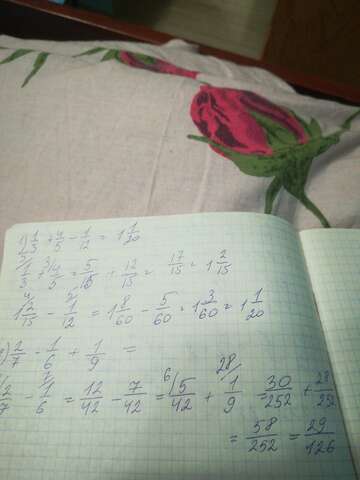 1) 1/3 + 4/5 - 1/12 = 1 1/20
1/3 + 4/5 = 5/15 + 12/15 = 17/15 = 1 2/15
1 2/15 - 1/12 = 1 8/60 - 5/60 = 1 3/60 = 1 1/20
2) 2/7 - 1/6 + 1/9 =
2/7 - 1/6 = 12/42 - 7/42 = 5/42 + 1/9 = 30/252 + 28/252
= 58/252 = 29/126